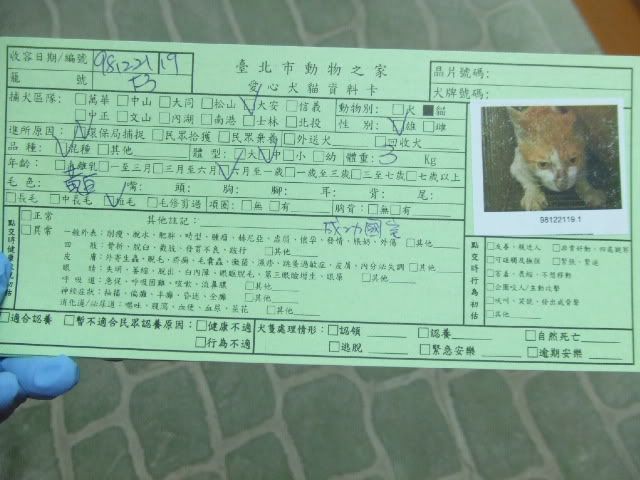 收容日期/編號 981221 19 臺北市動物之家 晶片號碼:
籠號 愛心犬貓資料卡 犬牌號碼:
捕犬區隊: □萬華 □中山 □大同 □松山 ☑大安 □信義 動物別: □犬 ■貓
□中正 □文山 □內湖 □南港 □士林 □北投 性別: ☑雄 □雌
進所原因: ☑環保局捕捉 □民眾拾獲 □民眾棄養 □外送犬 □回收犬
品種: ☑混種 □其他 體型: □大 ☑中 □小 □幼 體重: 3 Kg
年齡: □未離乳 □一至三月 □三月至六月 ☑六月至一歲 □一歲至三歲 □三至七歲 □七歲以上
毛色: 黃白 嘴: 頭: 胸: 腳: 耳: 背: 尾:
□長毛 □中長毛 ☑短毛 □毛修剪過 項圈: □無 □有 胸背: □無 □有
98122119.1
點交時健康初估 □正常 其他註記: 成功國宅
□異常 一般外表: □削瘦、脫水、肥胖、畸型、腫瘤、赫尼亞、虛弱、懷孕、發情、脹奶、外傷 □其他
四肢: □骨折、脫臼、截肢、發育不良、跛行 □其他
皮膚: □外寄生蟲、脫毛、疥癬、毛囊蟲、黴菌、濕疹、跳蚤過敏症、皮屑、內分泌失調 □其他
眼睛: □失明、萎縮、脫出、白內障、眼瞼脫毛、第三眼瞼增生、眼屎 □其他
呼吸道: □急促、呼吸困難、咳嗽、流鼻膿 □其他
神經症狀: □抽搐、偏癱、半癱、昏迷、全癱 □其他
消化道/泌尿道: □嘔吐、腹瀉、血便、血尿、菜花 □其他
點交時行為初估 □友善、親近人 □非常好動、四處觀察
□可碰觸及撫摸 □緊張、緊迫
□害羞、畏縮、不想移動
□企圖咬人/主動攻擊
□吠叫、哭號、發出威脅聲
□其他
□適合認養 □暫不適合民眾認養原因: □健康不適 犬隻處理情形: □認領 □認養 □自然死亡
□行為不適 □逃脫 □緊急安樂 □逾期安樂